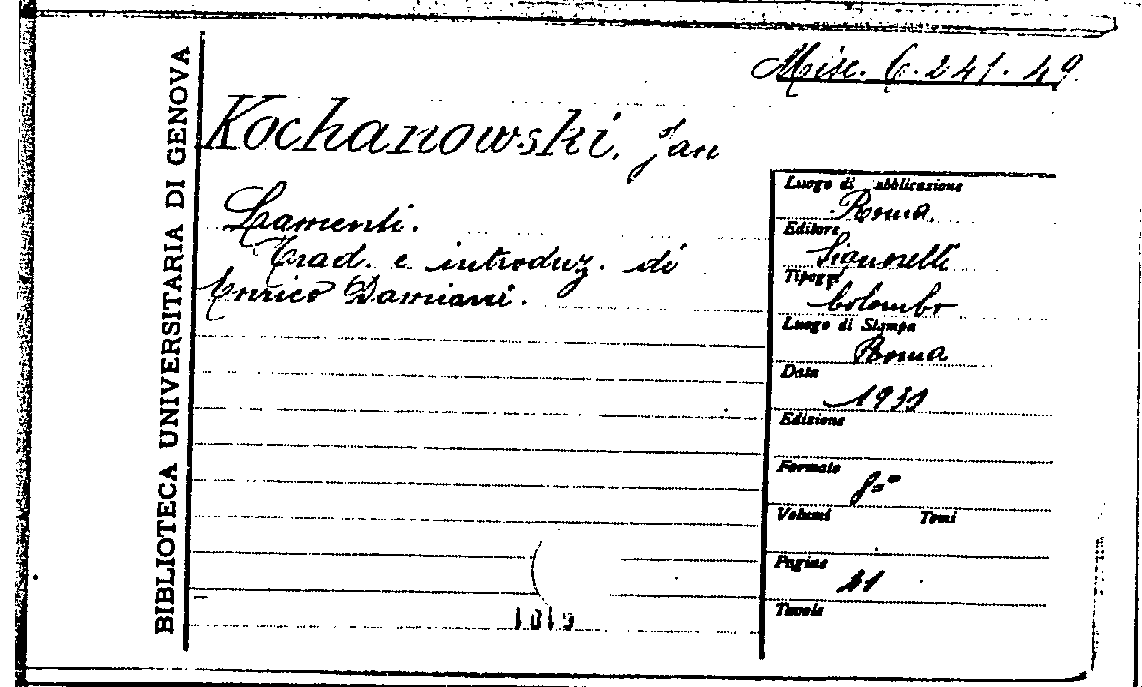 BIBLIOTECA UNIVERSITARIA DI GENOVA
Misc. C. 241. 49.
Kochanowski, Jan
Lamenti.
Trad. e introduz. di
Enrico Damiani.
Luogo di pubblicazione
Roma
Editore
Signorelli
Tipogr.
Colombo
Luogo di Stampa
Roma
Data
1931
Edizione
Formato
8º
Volumi Tomi
Pagine
Tavole
1019